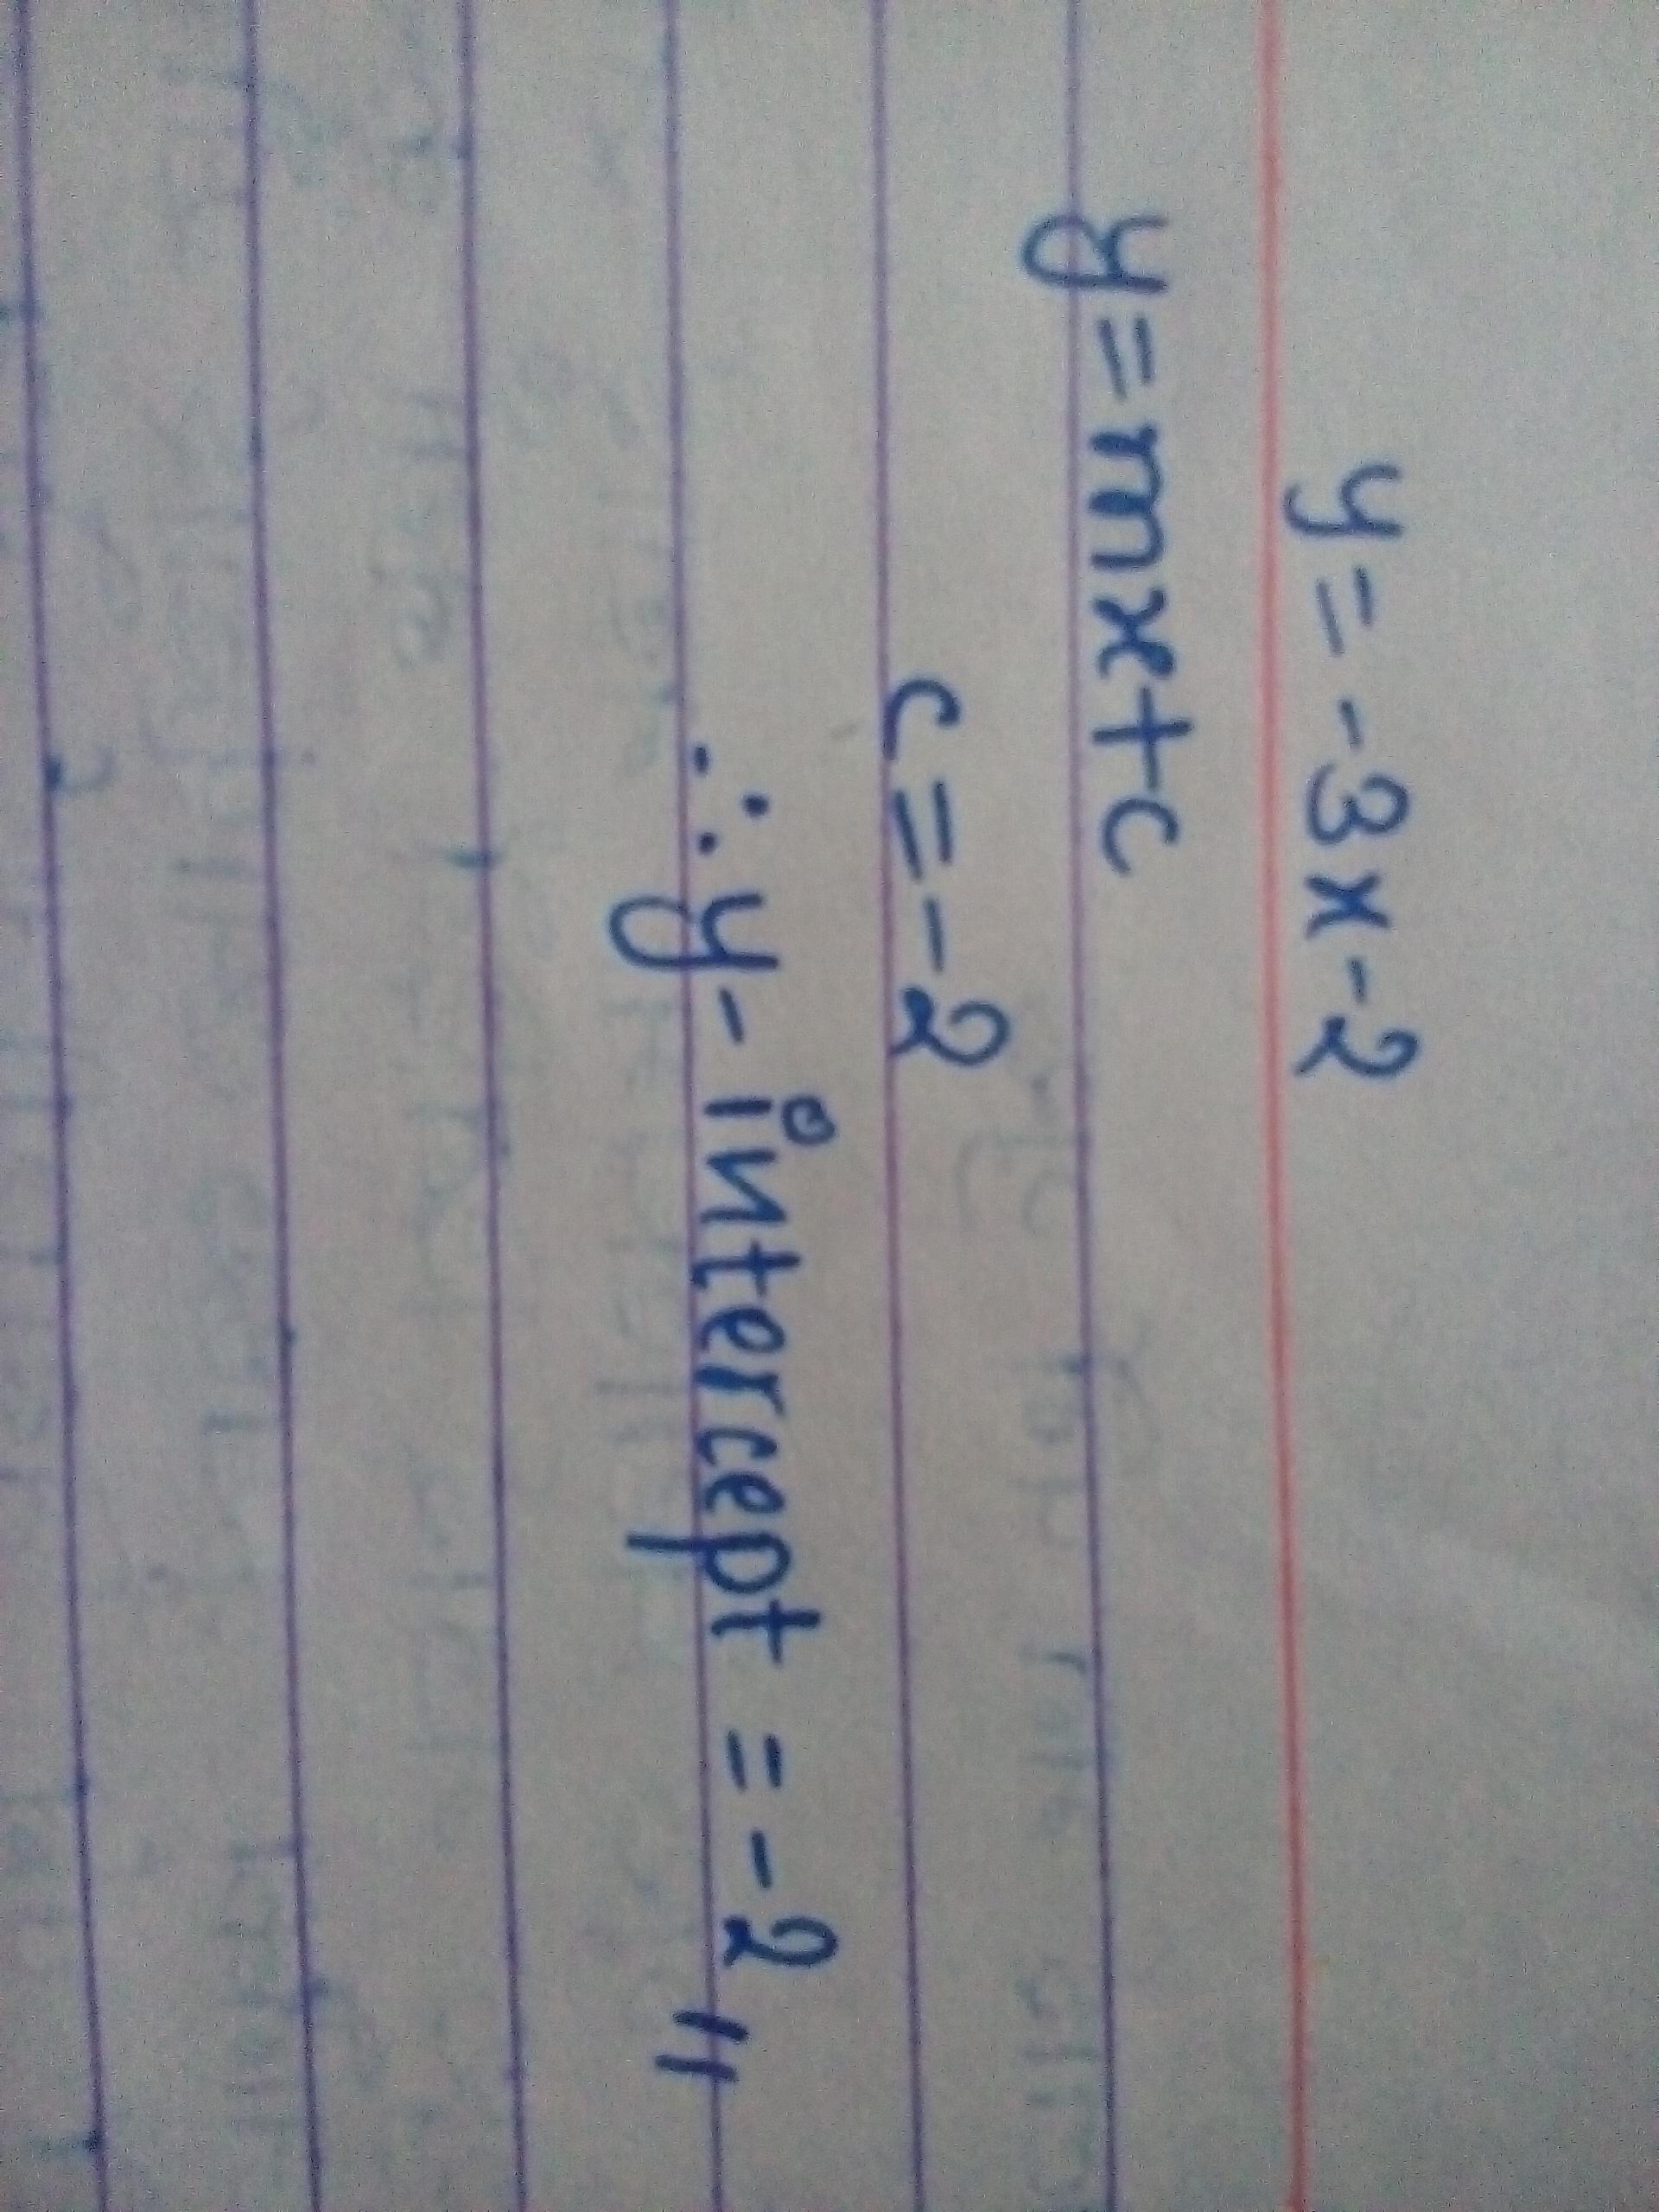 y = -3x-2
y=mx+c
c=-2
∴ y-intercept = -2 "